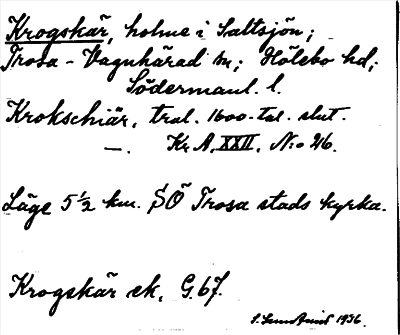 Krogskär, holme i Saltsjön;
Trosa-Vagnhärad sn; Hölebo hd;
Södermanl. l.
Krokschiär, trol. 1600-tal. slut.
—. Kr. A. XXII. N:o 26.
Läge 5 ½ km. SÖ Trosa stads kyrka.
Krogskär ek. G. 67.
1936.